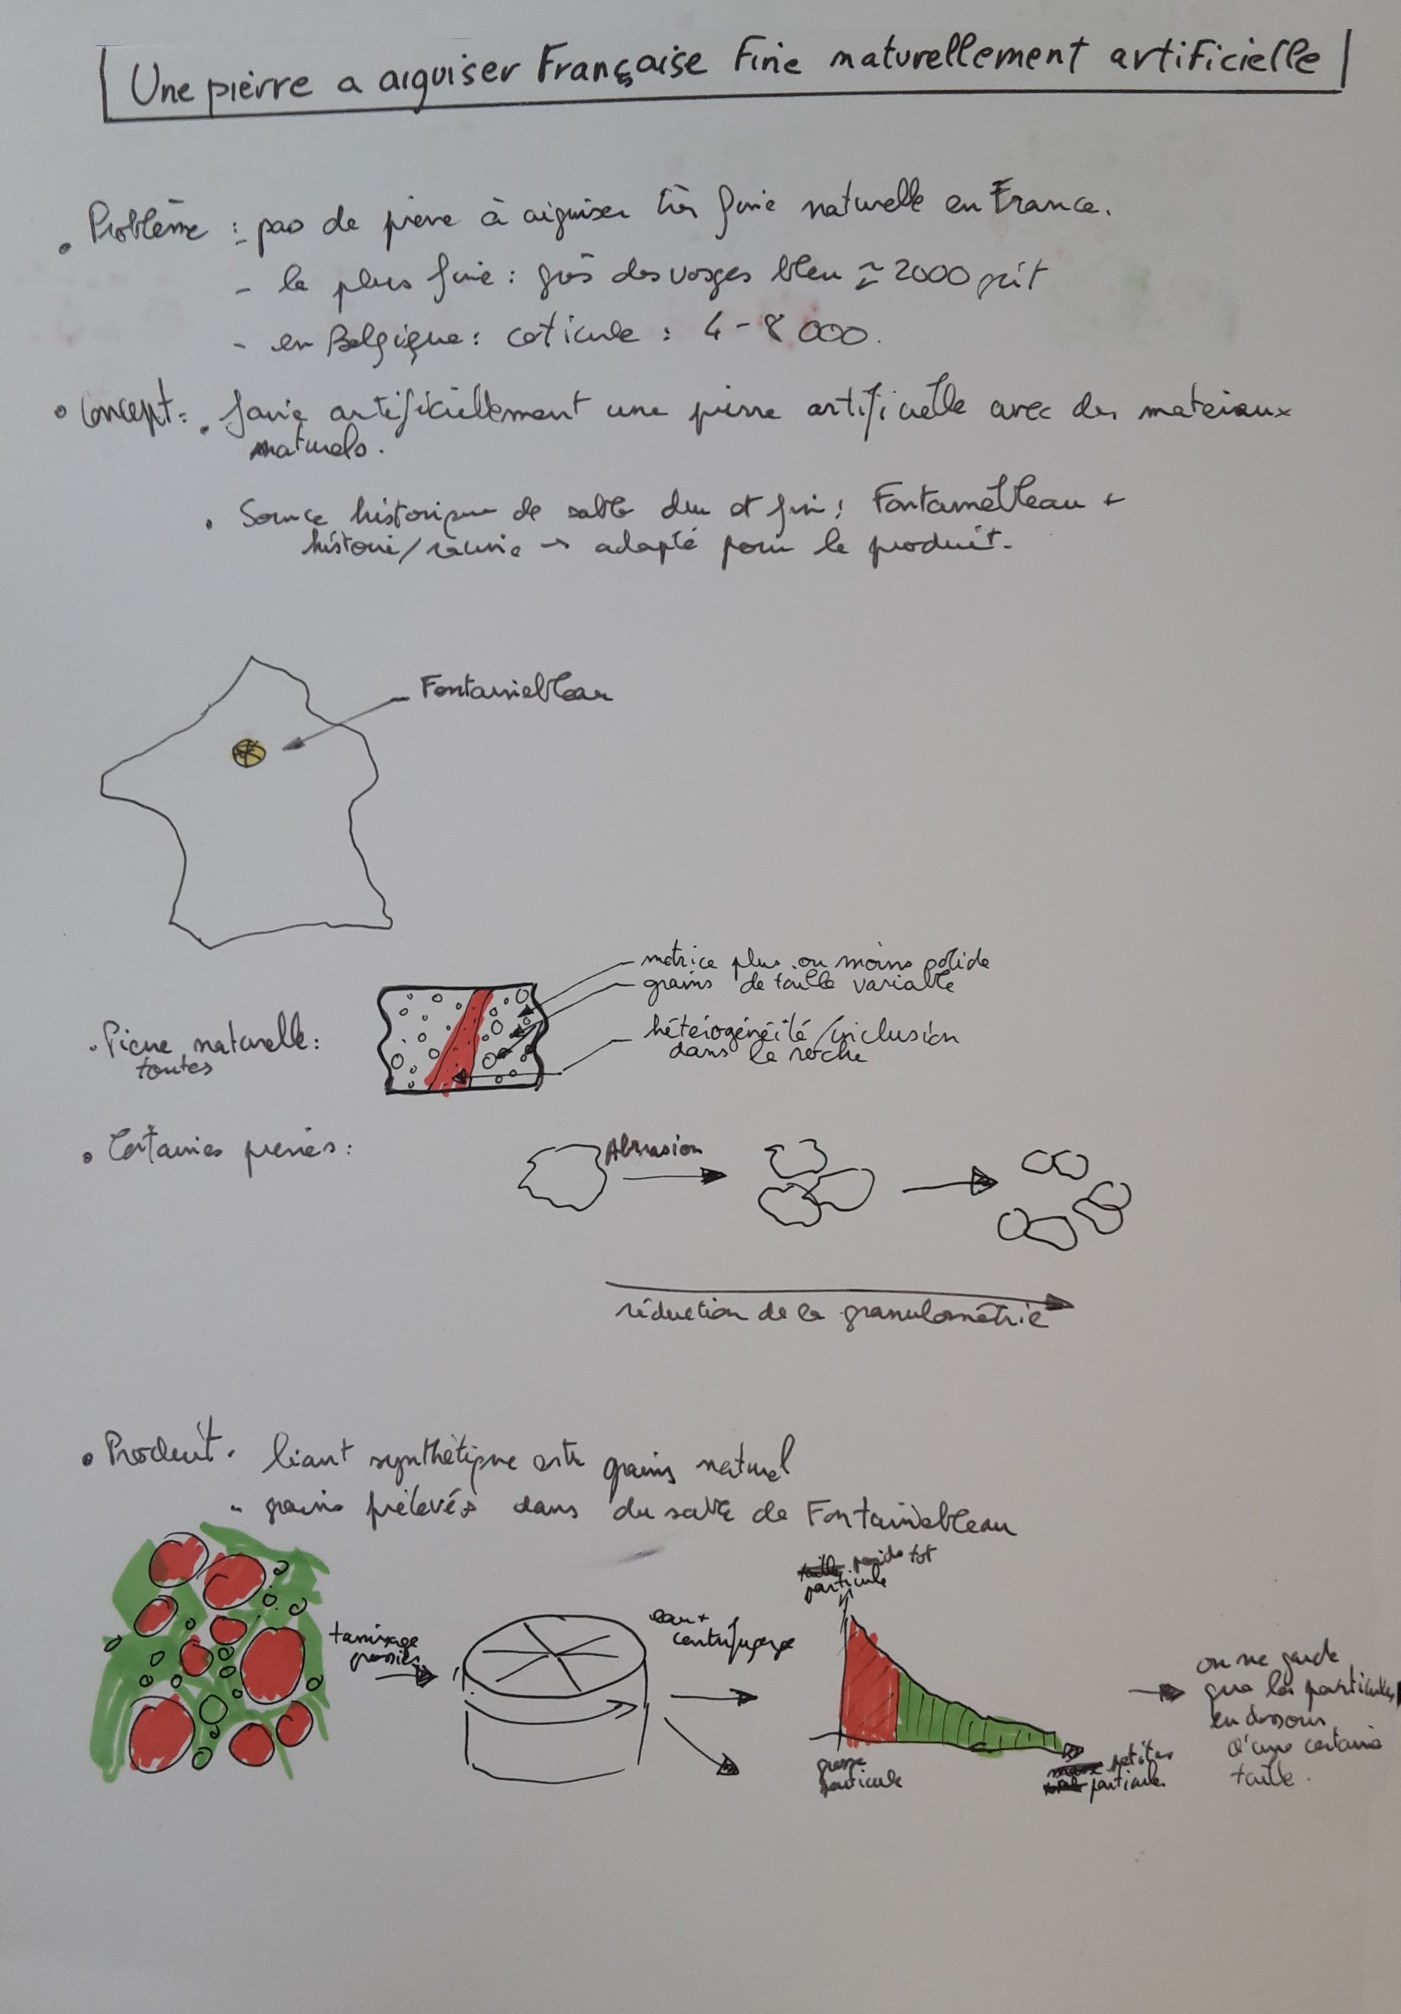 Une pierre a aiguiser Française Fine naturellement artificielle
• Problème : - pas de pierre à aiguiser très fine naturelle en France.
- la plus fine : grès des vosges bleu ≃ 2000 grit
- en Belgique : coticule : 4 - 8 000.
• Concept : • faire artificiellement une pierre artificielle avec des materiaux
naturels.
• Source historique de sable dur et fin : Fontainebleau +
histoire/ → adapté pour le produit.
Fontainebleau
matrice plus ou moins solide
grains de taille variable
• Pierre naturelle :
toutes
hétérogénéité/inclusion
dans la roche
• Certaines pierres :
Abrasion
réduction de la granulométrie
• Produit. liant synthétique grains naturel
- grains prélevés dans du sable de Fontainebleau
poids tot
particule
tamisage
grossier
eau +
centrifugeuse
on ne garde
que les particules
en dessous
d'une certaine
taille.
grosse
particule
petites
particules